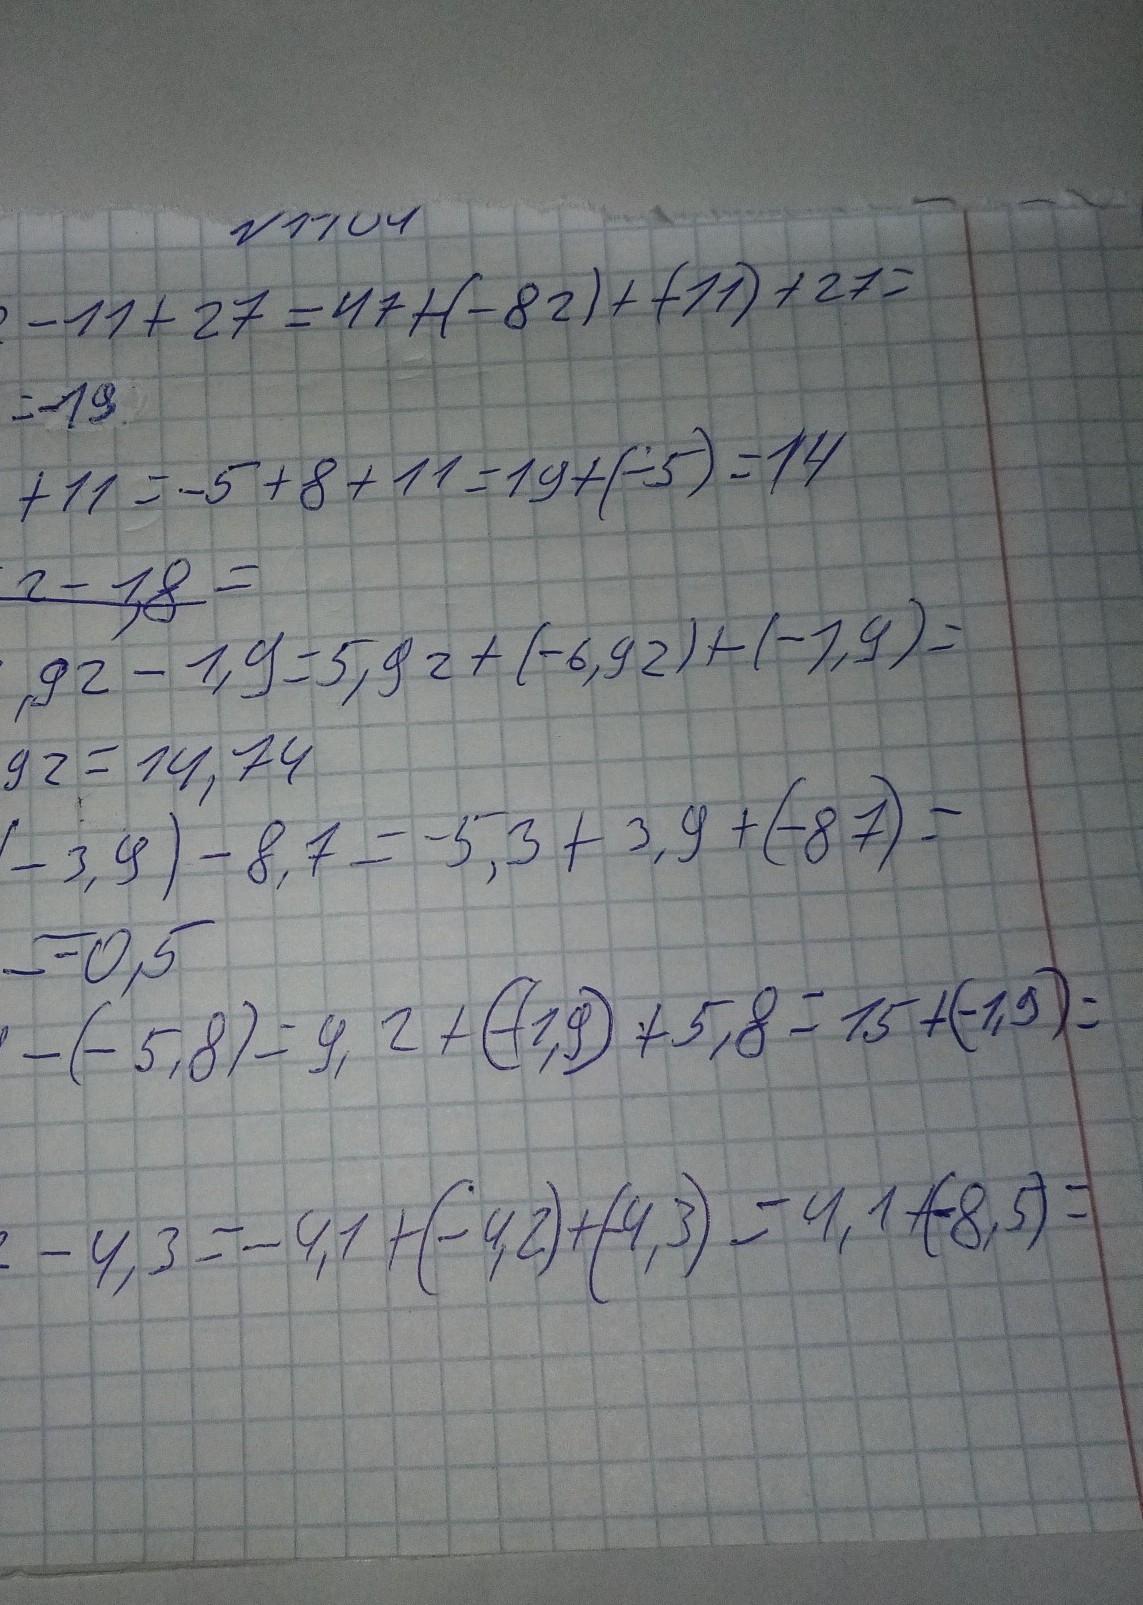 - 11 + 27 = 47 + (-82) + (-11) + 27 =
= -19
+ 11 = -5 + 8 + 11 = 19 + (-5) = 14
2 - 1,8 =
,92 - 1,9 = 5,92 + (-6,92) + (-1,9) =
92 = 14,74
(-3,9) - 8,7 = -5,3 + 3,9 + (-87) =
= -0,5
- (-5,8) = 9,2 + (-1,9) + 5,8 = 15 + (-1,9) =
- 4,3 = -4,1 + (-4,2) + (-4,3) = 4,1 + (-8,5) =